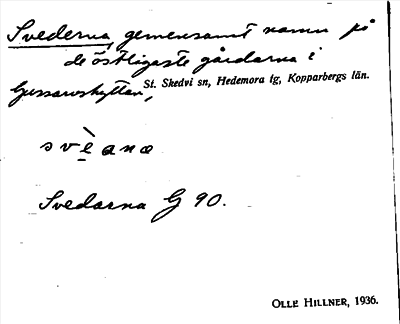 Svederna, gemensamt namn på
de östligaste gårdarna i
Gussarvshyttan, St. Skedvi sn, Hedemora tg, Kopparbergs län.
svèana
Svedarna G 90.
OLLE HILLNER, 1936.